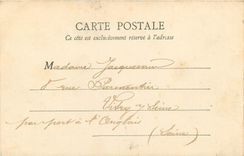 CARTE POSTALE
Ce côté est exclusivement réservé à l'adresse
Madame Jacquesson
8 rue Parmentier
Vitry s/ Seine
par port à l'Anglais
(Seine)